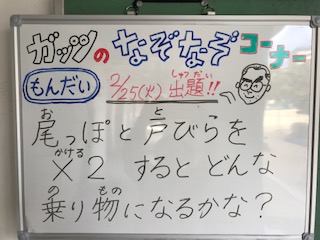 ガッツのなぞなぞコーナー
もんだい 2/25(火) 出題!!
尾っぽと戸びらを
×2 するとどんな
乗り物になるかな?